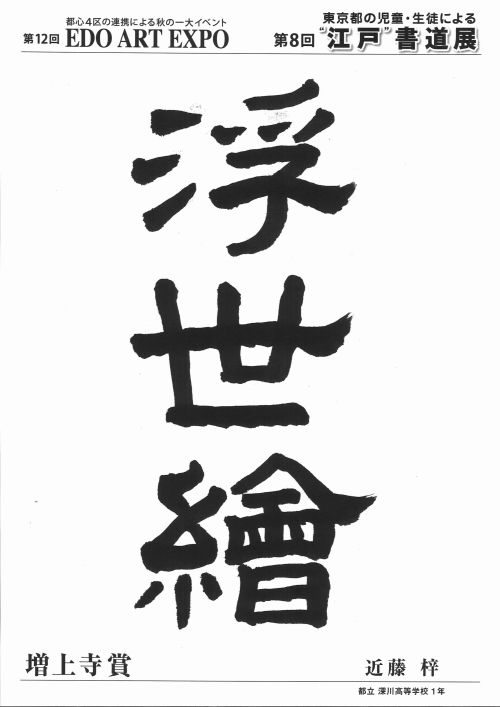 都心4区の連携による秋の一大イベント
第12回 EDO ART EXPO
東京都の児童・生徒による
第8回 “江戸”書道展
浮
世
繪
増上寺賞
近藤 梓
都立 深川高等学校1年